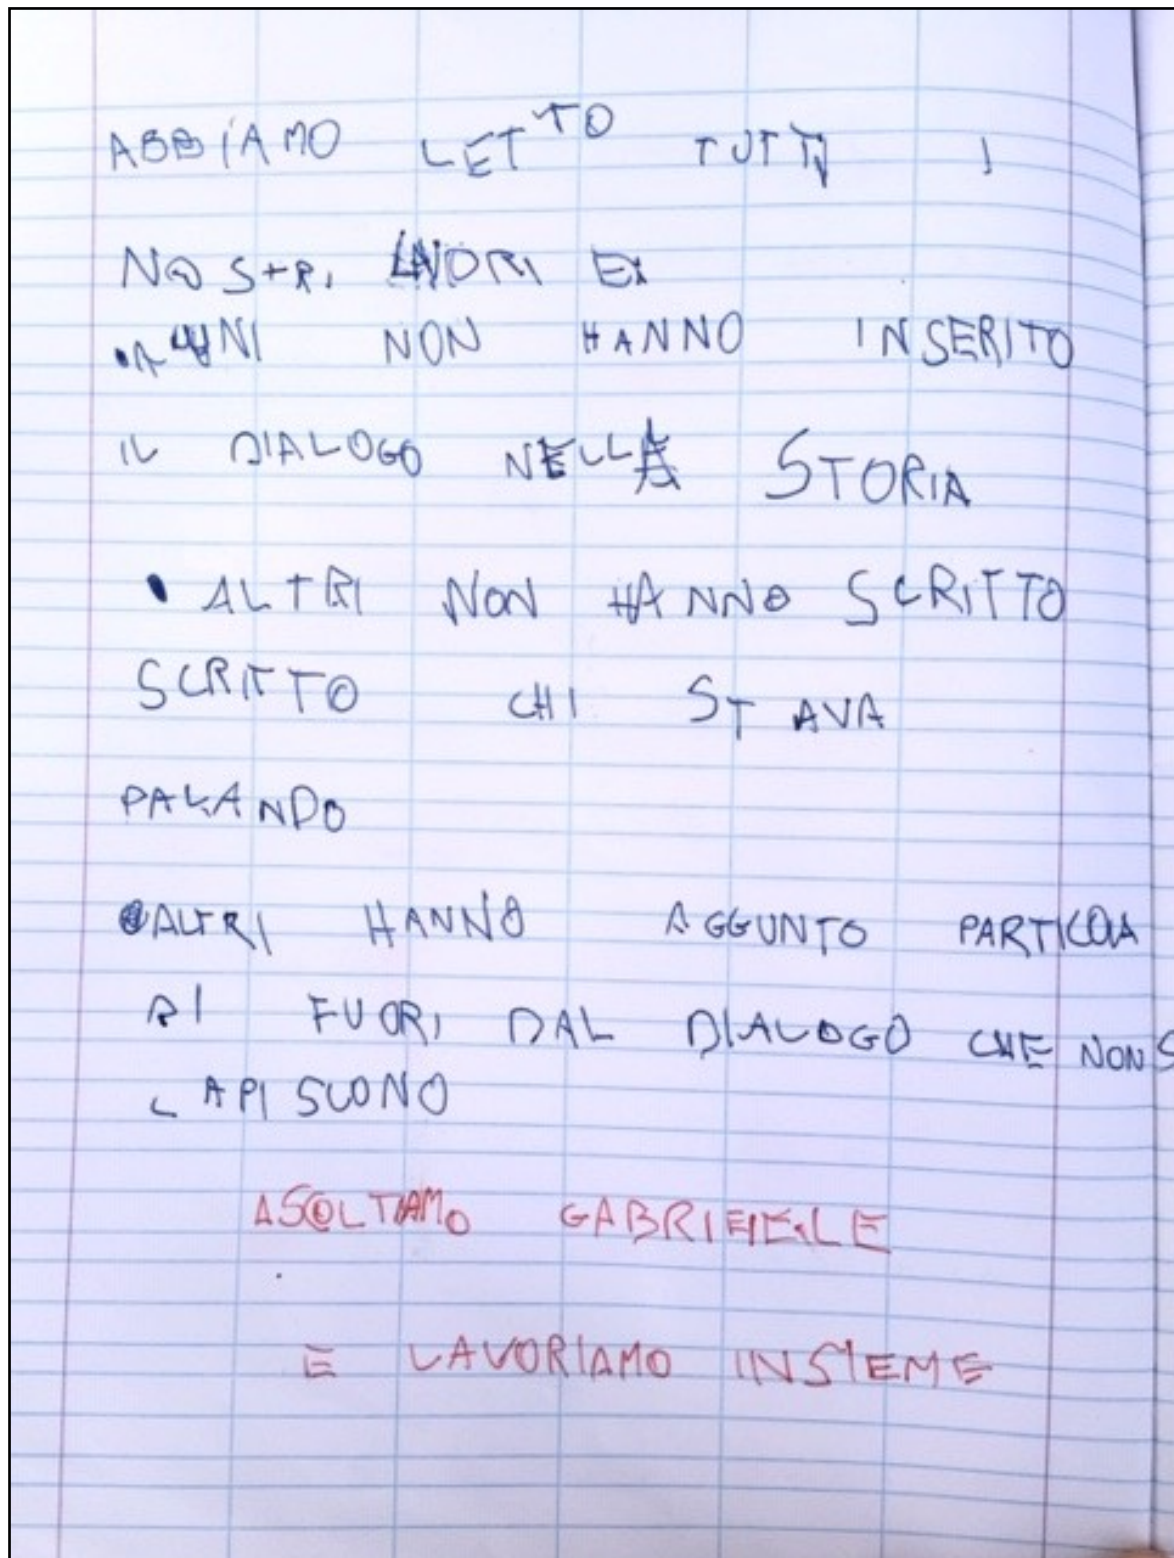 ABBIAMO LETTO TUTTI I
NOSTRI LAVORI E
• NON HANNO INSERITO
IL DIALOGO NELLA STORIA
• ALTRI NON HANNO SCRITTO
SCRITTO CHI STAVA
PALANDO
• ALTRI HANNO AGGUNTO PARTICOLA
RI FUORI DAL DIALOGO CHE NON S
CAPISCONO
ASCOLTIAMO GABRIELE
E LAVORIAMO INSIEME